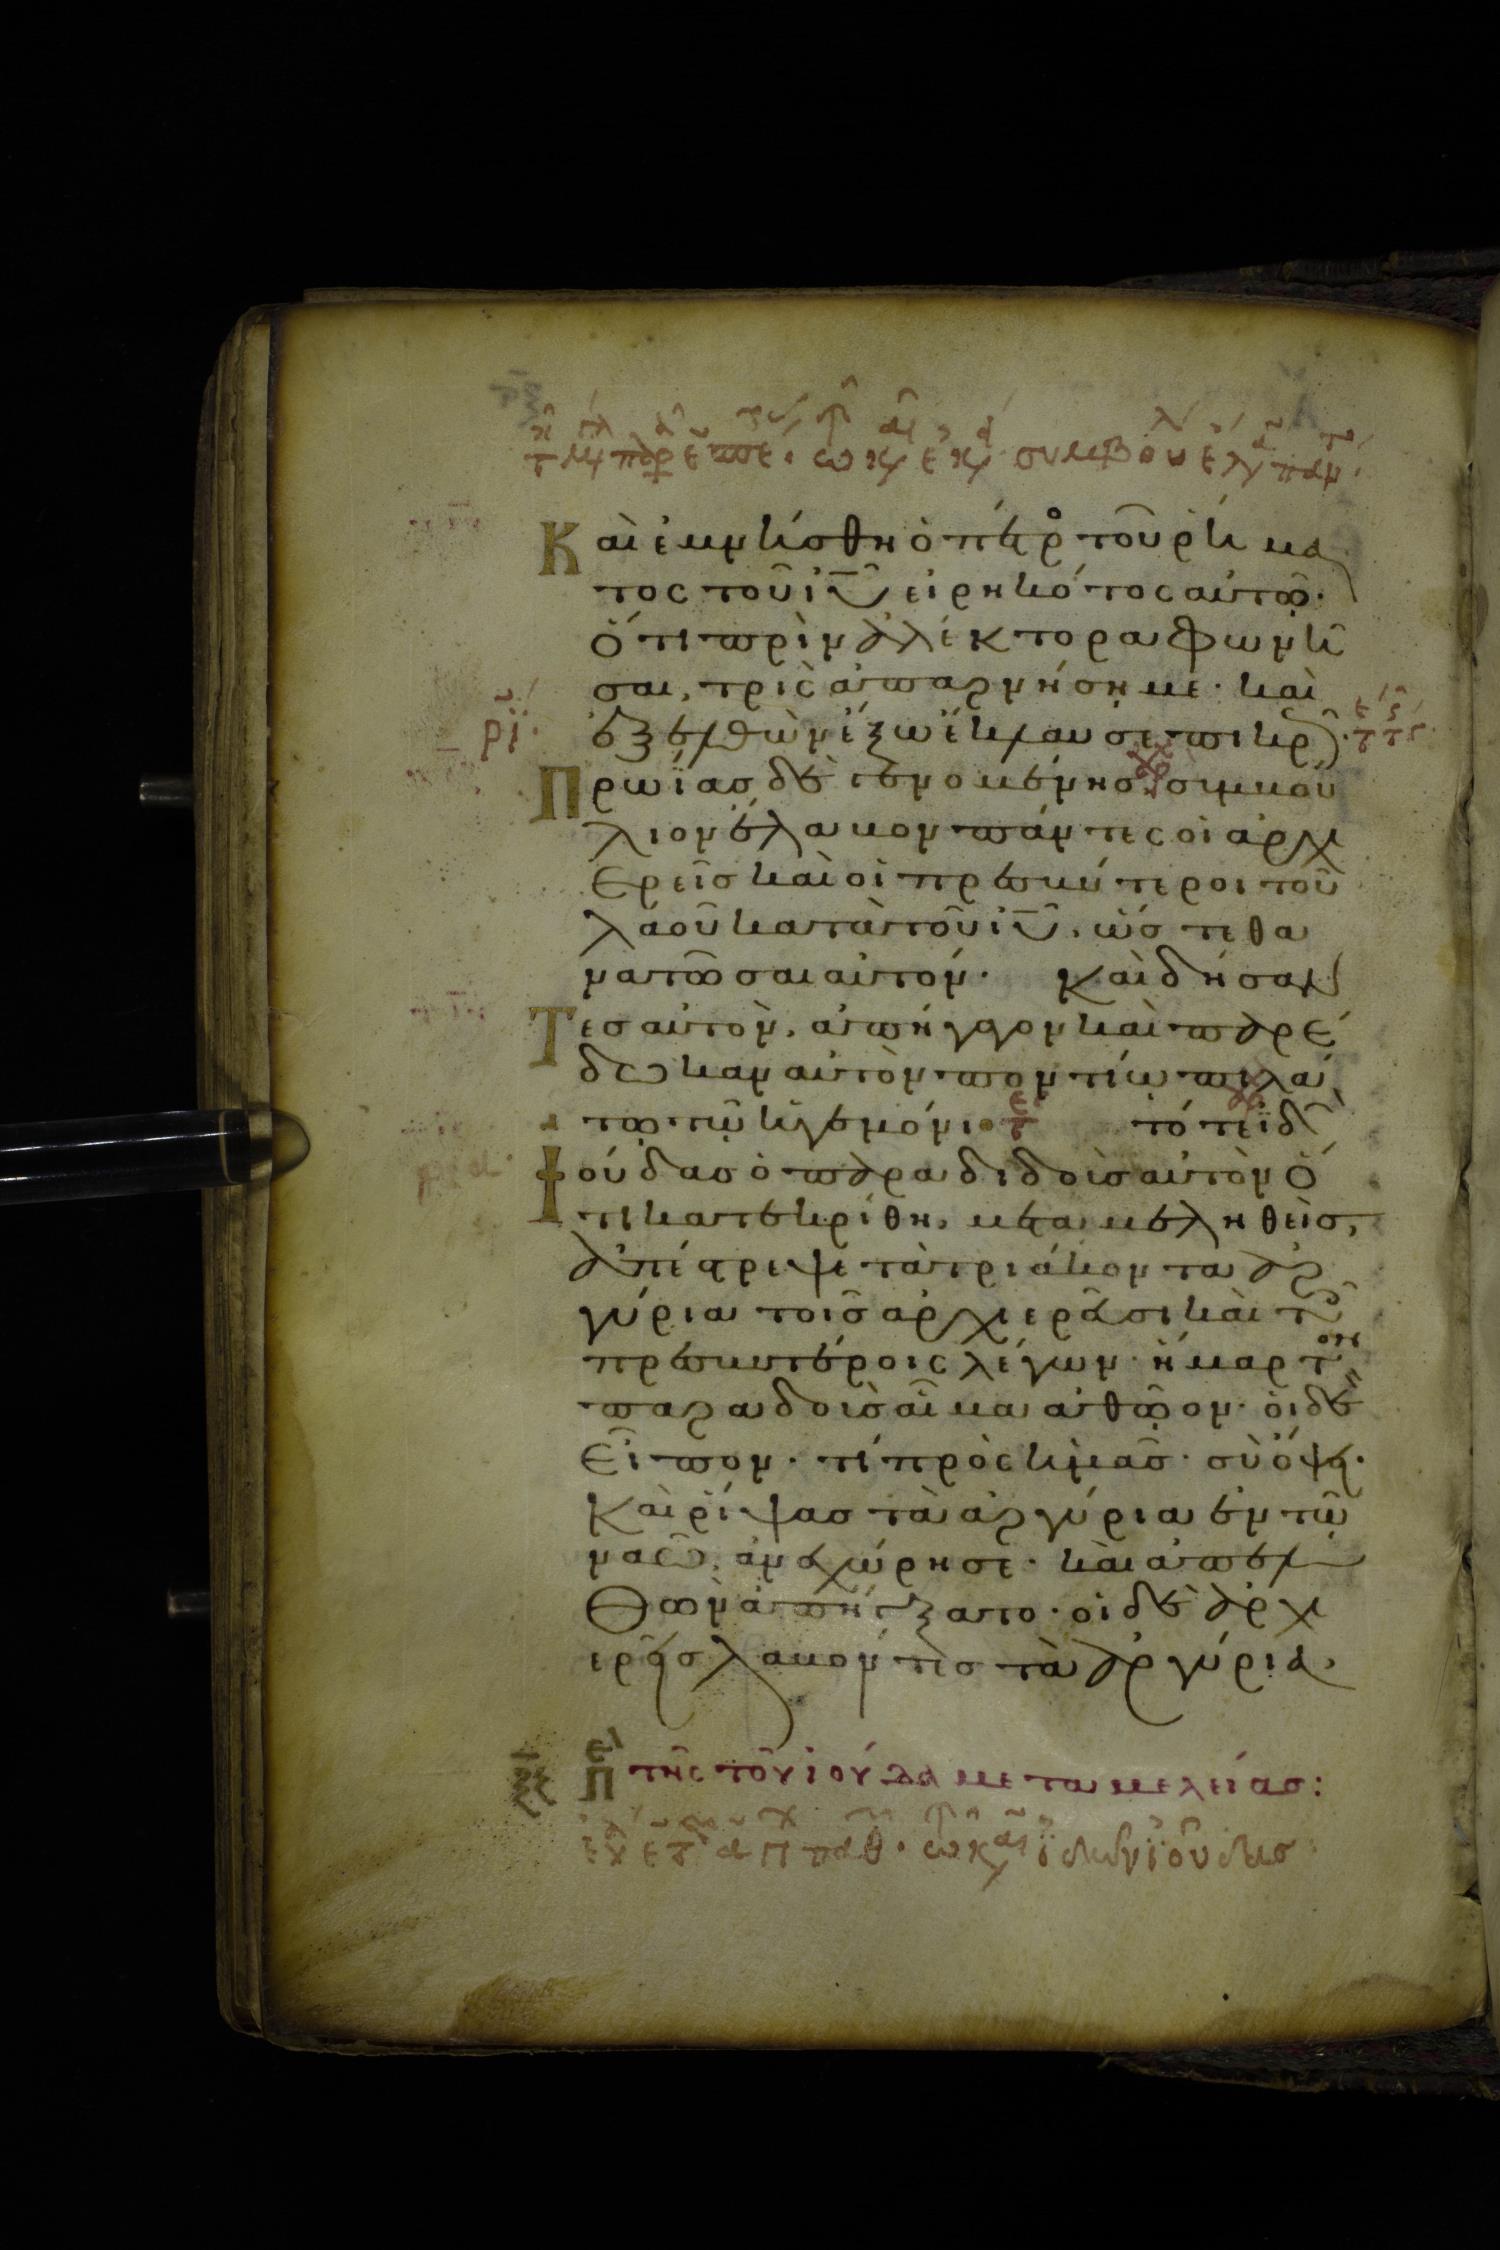 Καὶ ἐμνήσθη ὁ πέτρο τοῦ ρήμα
τος τοῦ ιῦ εἰρηκότος αὐτῶ·
Ὅτι πρὶν ἀλέκτορα φωνῆ
σαι, τρὶς ἀπαρνήση με· καὶ
ἐξελθὼν ἔξω ἔκλαυσε πικρ
Πρωΐας δὲ γενομένης, συμβού
λιον ἔλαβον πάντες οἱ ἀρχι
ερεῖς καὶ οἱ πρεσβύτεροι τοῦ
λαοῦ κατὰ τοῦ ιῦ, ὥστε θα
νατῶσαι αὐτόν· Καὶ δήσαν
Τες αὐτὸν, ἀπήγαγον καὶ παρέ
δωκαν αὐτὸν ποντίω πιλά
τω τῶ ἡγεμόνι τότε ἰδ
Ἰούδας ὁ παραδιδοὺς αὐτὸν ὅ
τι κατεκρίθη, μεταμεληθεὶς,
ἀπέστρεψε τὰ τριάκοντα ἀρ
γύρια τοῖς ἀρχιερεῦσι καὶ τ
πρεσβυτέροις λέγων· ἥμαρτον
παραδοὺς αἷμα ἀθῶον· οἱ δὲ
Εἶπον· τί πρὸς ἡμᾶς· σὺ ὄψη·
Καὶ ρίψας τὰ ἀργύρια ἐν τῶ
ναῶ, ἀνεχώρησε· καὶ ἀπελ
Θὼν ἀπήγξατο· οἱ δὲ ἀρχι
ερεῖς λαβόντες τὰ ἀργύρια,
τῆς τοῦ ἰούδα μεταμελείας: